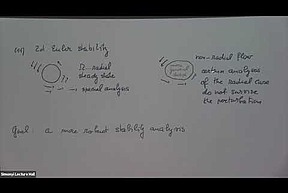 2d Euler stability
Ω-radial
steady state
spectral analysis
non-radial flow
certain analyses
of the radial case
do not survive
the perturbation
Goal: a more robust stability analysis
Simonyi Lecture Hall